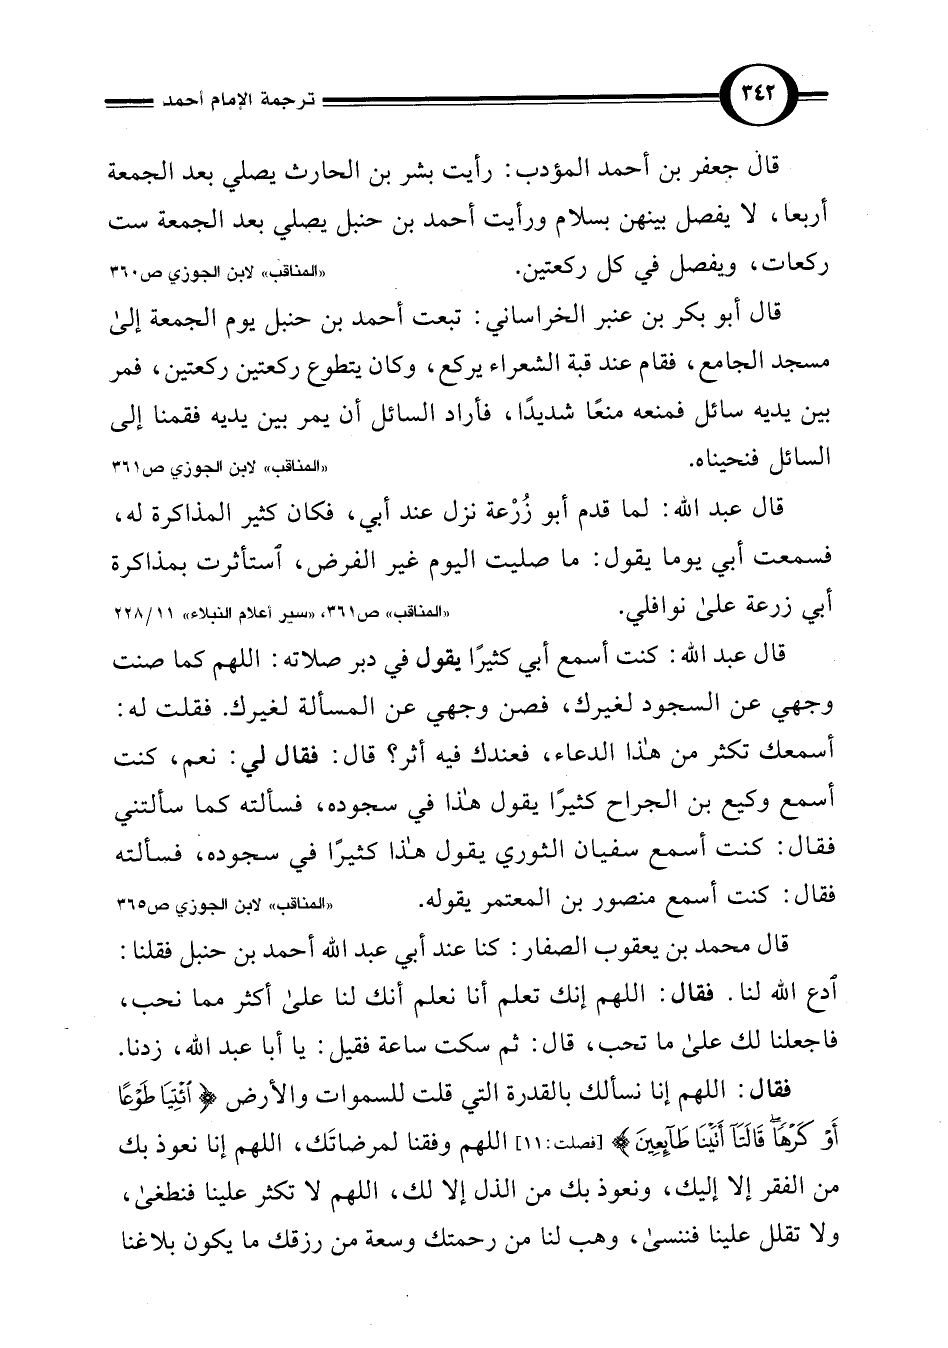 ٣٤٢ ترجمة الإمام أحمد
قال جعفر بن أحمد المؤدب: رأيت بشر بن الحارث يصلي بعد الجمعة
أربعا، لا يفصل بينهن بسلام ورأيت أحمد بن حنبل يصلي بعد الجمعة ست
ركعات، ويفصل في كل ركعتين. «المناقب» لابن الجوزي ص٣٦٠
قال أبو بكر بن عنبر الخراساني: تبعت أحمد بن حنبل يوم الجمعة إلىٰ
مسجد الجامع، فقام عند قبة الشعراء يركع، وكان يتطوع ركعتين ركعتين، فمر
بين يديه سائل فمنعه منعًا شديدًا، فأراد السائل أن يمر بين يديه فقمنا إلى
السائل فنحيناه. «المناقب» لابن الجوزي ص٣٦١
قال عبد الله: لما قدم أبو زُرْعة نزل عند أبي، فكان كثير المذاكرة له،
فسمعت أبي يوما يقول: ما صليت اليوم غير الفرض، ٱستأثرت بمذاكرة
أبي زرعة علىٰ نوافلي. «المناقب» ص٣٦١، «سير أعلام النبلاء» ١١/ ٢٢٨
قال عبد الله: كنت أسمع أبي كثيرًا يقول في دبر صلاته: اللهم كما صنت
وجهي عن السجود لغيرك، فصن وجهي عن المسألة لغيرك. فقلت له:
أسمعك تكثر من هٰذا الدعاء، فعندك فيه أثر؟ قال: فقال لي: نعم، كنت
أسمع وكيع بن الجراح كثيرًا يقول هٰذا في سجوده، فسألته كما سألتني
فقال: كنت أسمع سفيان الثوري يقول هٰذا كثيرًا في سجوده، فسألته
فقال: كنت أسمع منصور بن المعتمر يقوله. «المناقب» لابن الجوزي ص٣٦٥
قال محمد بن يعقوب الصفار: كنا عند أبي عبد الله أحمد بن حنبل فقلنا:
ٱدع الله لنا. فقال: اللهم إنك تعلم أنا نعلم أنك لنا علىٰ أكثر مما نحب،
فاجعلنا لك علىٰ ما تحب، قال: ثم سكت ساعة فقيل: يا أبا عبد الله، زدنا.
فقال: اللهم إنا نسألك بالقدرة التي قلت للسموات والأرض ﴿ٱئْتِيَا طَوْعًا
أَوْ كَرْهًاۖ قَالَتَآ أَتَيْنَا طَآئِعِينَ﴾ [فصلت: ١١] اللهم وفقنا لمرضاتك، اللهم إنا نعوذ بك
من الفقر إلا إليك، ونعوذ بك من الذل إلا لك، اللهم لا تكثر علينا فنطغىٰ،
ولا تقلل علينا فننسىٰ، وهب لنا من رحمتك وسعة من رزقك ما يكون بلاغنا